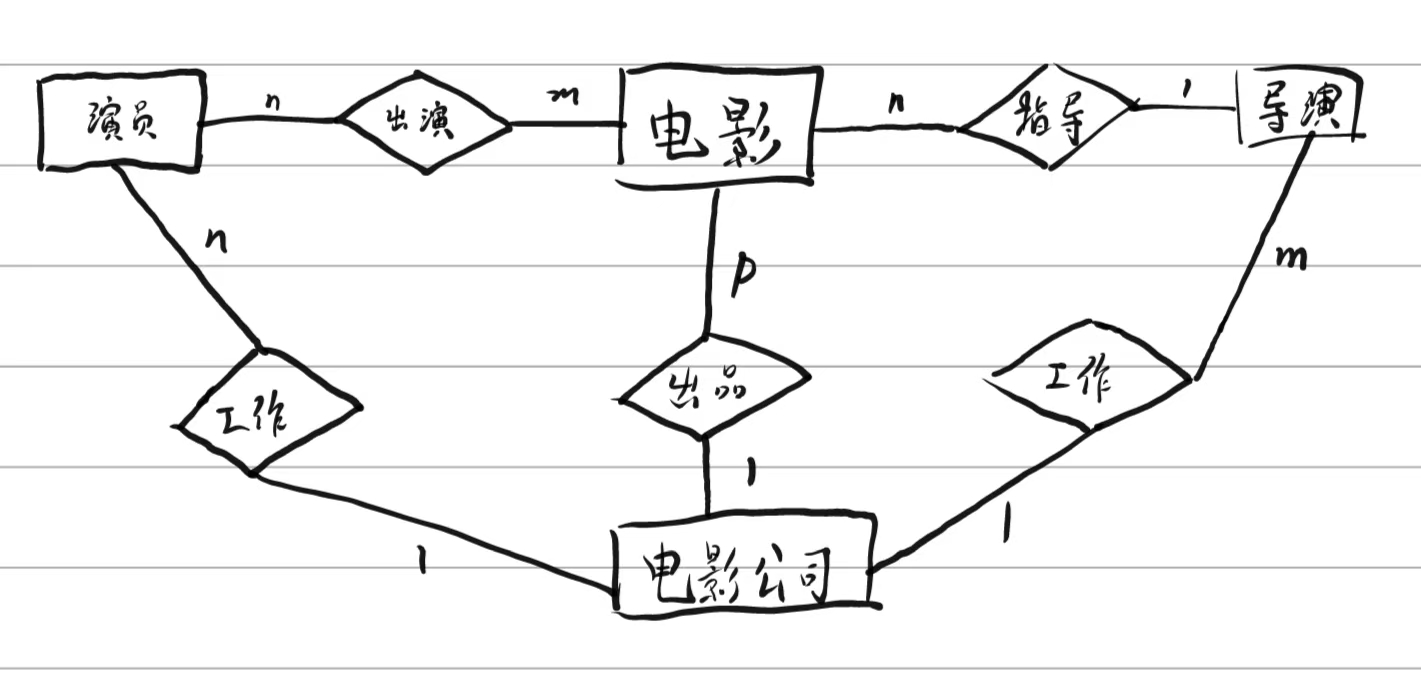 演员 n 出演 m 电影 n 指导 1 导演
n p m
工作 出品 工作
1 1 1
电影公司